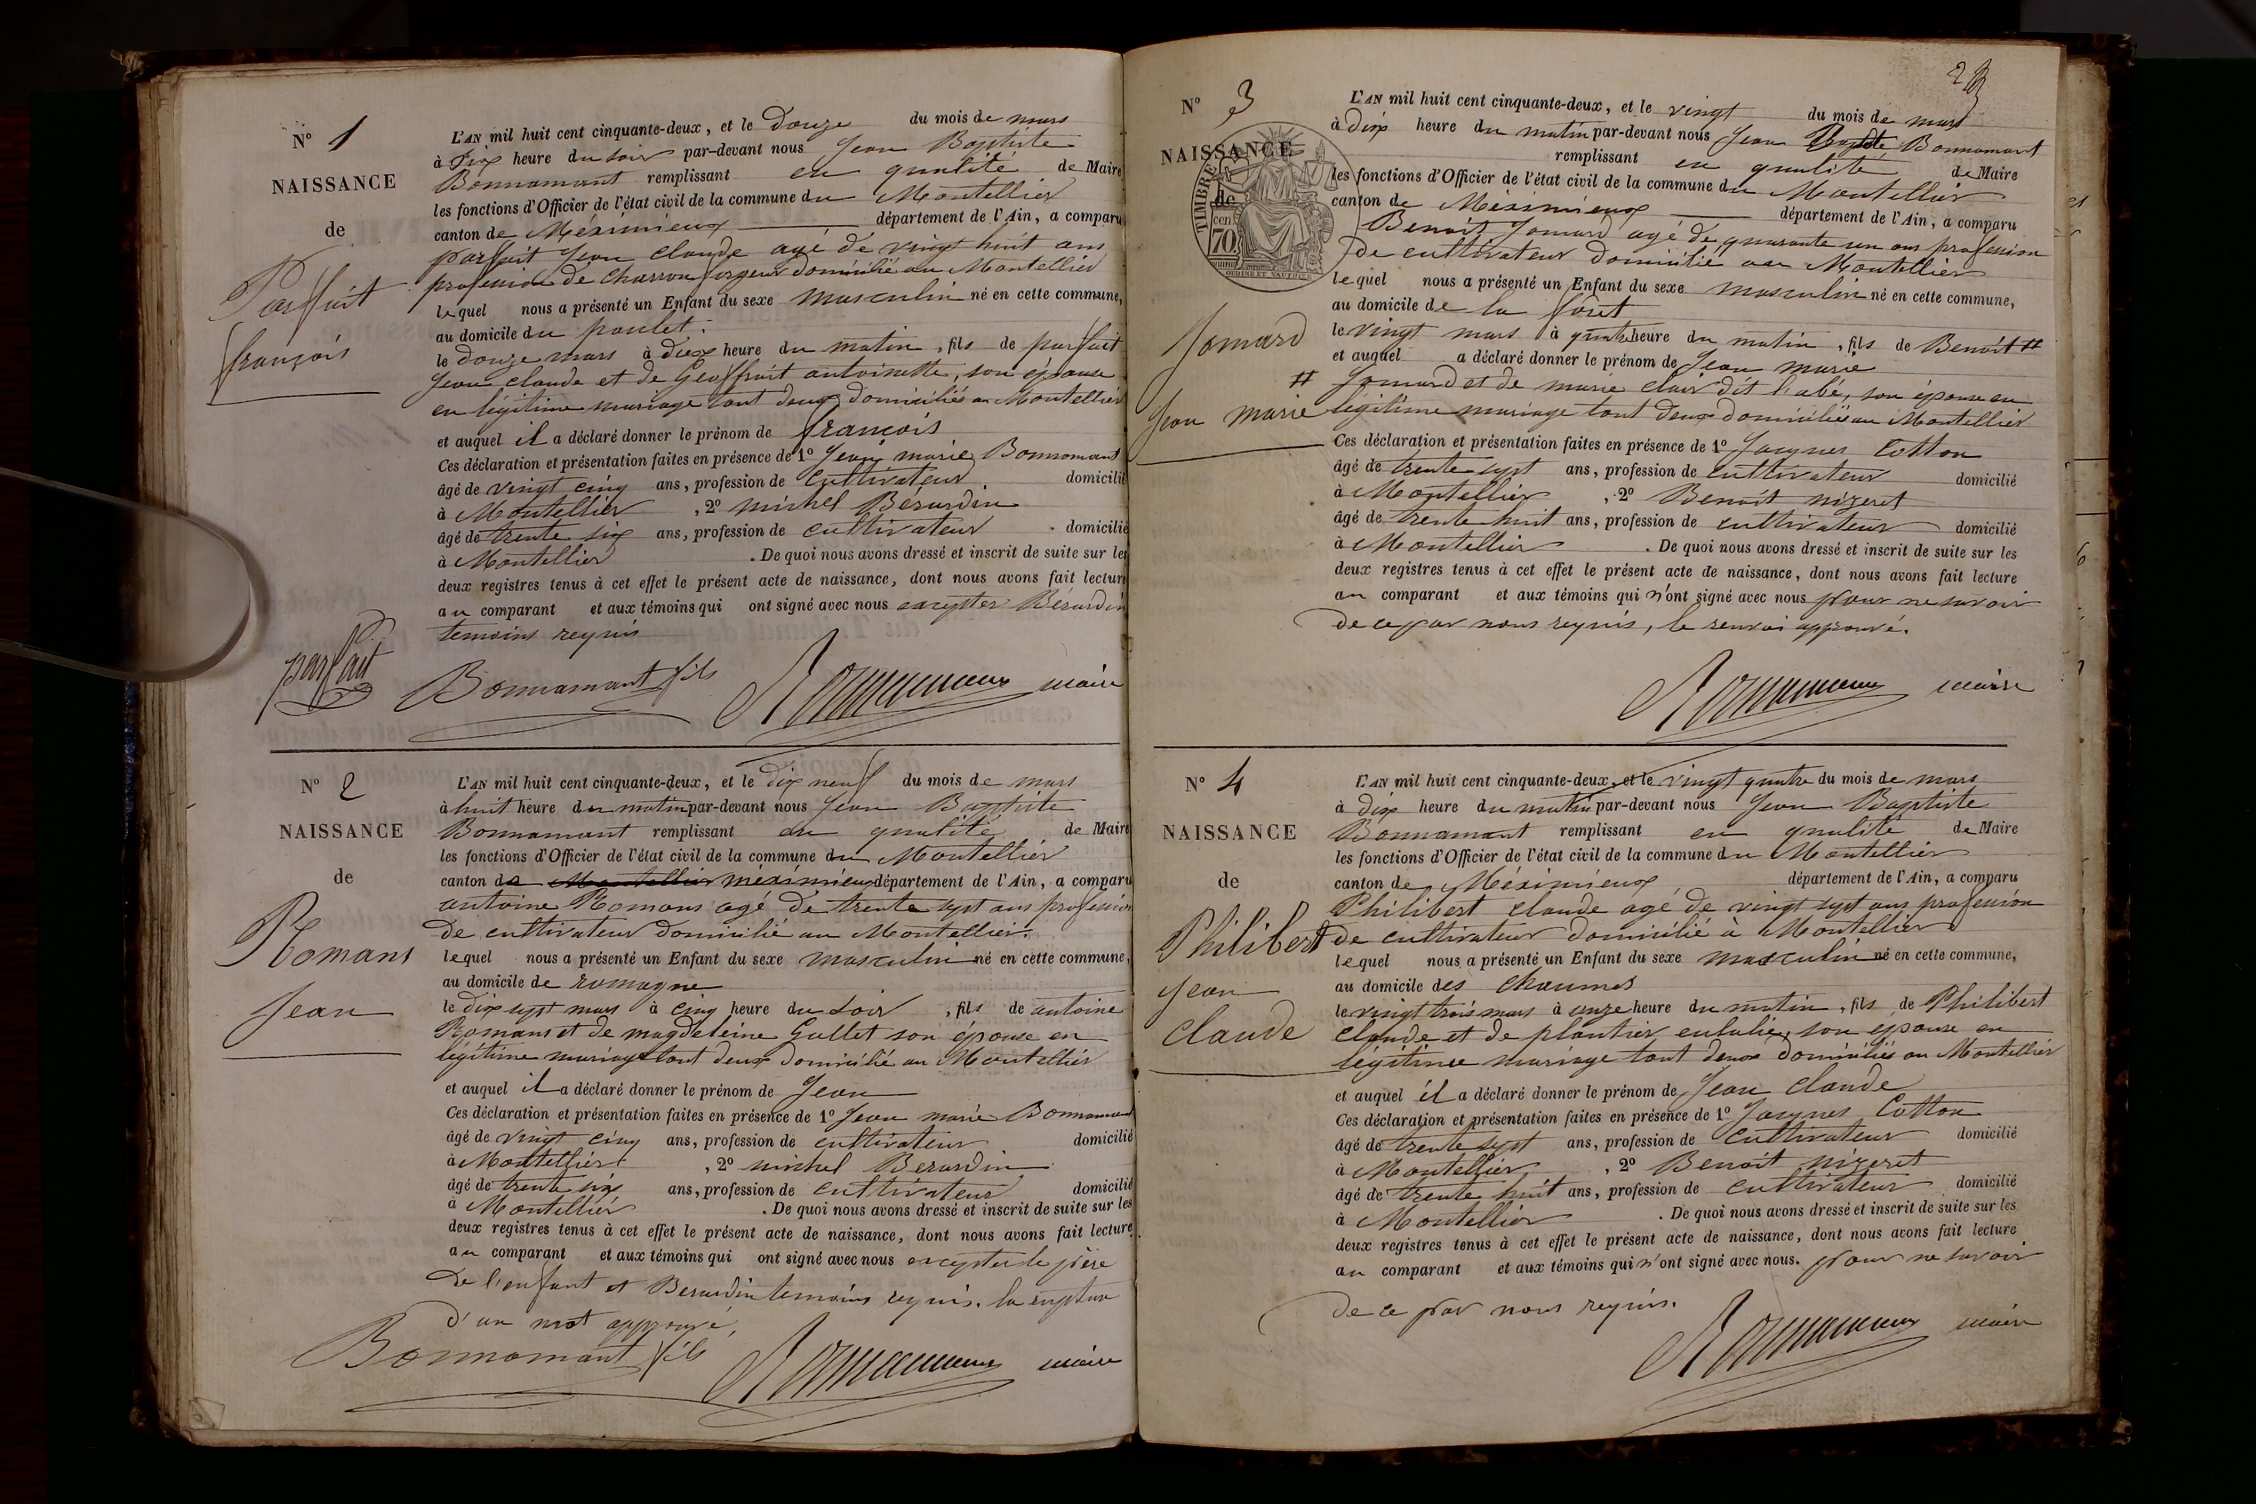 N° 1
NAISSANCE
de
Parfait
françois
L'AN mil huit cent cinquante-deux, et le Douze du mois de mars
à Dix heure du soir par-devant nous Jean Baptiste
Bonnamant remplissant en qualité de Maire
les fonctions d'Officier de l'état civil de la commune du Montellier
canton de Méximieux département de l'Ain, a comparu
parfait Jean claude agé de vingt huit ans
profession de charron forgeur domicilié au Montellier
lequel nous a présenté un Enfant du sexe masculin né en cette commune,
au domicile du poulet.
le douze mars à deux heure du matin, fils de parfait
Jean claude et de Geoffruit antoinette, son épouse
en légitime mariage tout deux domiciliés au Montellier
et auquel il a déclaré donner le prénom de françois
Ces déclaration et présentation faites en présence de 1° Jean marie Bonnamant
âgé de vingt cinq ans, profession de Cultivateur domicilié
à Montellier, 2° michel Bérardin
âgé de trente six ans, profession de cultivateur domicilié
à Montellier. De quoi nous avons dressé et inscrit de suite sur les
deux registres tenus à cet effet le présent acte de naissance, dont nous avons fait lecture
au comparant et aux témoins qui ont signé avec nous excepter Bérardin
temoins requis
parfait Bonnamant fils Bonnamant maire
N° 2
NAISSANCE
de
Romans
Jean
L'AN mil huit cent cinquante-deux, et le dix neuf du mois de mars
à huit heure du matin par-devant nous Jean Baptiste
Bonnamant remplissant en qualité de Maire
les fonctions d'Officier de l'état civil de la commune du Montellier
canton de Montellier meximieux département de l'Ain, a comparu
antoine Romans agé de trente sept ans profession
de cultivateur domicilié au Montellier.
lequel nous a présenté un Enfant du sexe masculin né en cette commune,
au domicile de romagne
le dix sept mars à cinq heure du soir, fils de antoine
Romans et de magdeleine Gallet son épouse en
légitime mariage tout deux domicilié au Montellier
et auquel il a déclaré donner le prénom de Jean
Ces déclaration et présentation faites en présence de 1° Jean marie Bonnamant
âgé de vingt cinq ans, profession de cultivateur domicilié
à Montellier, 2° michel Berardin
âgé de trente six ans, profession de cultivateur domicilié
à Montellier. De quoi nous avons dressé et inscrit de suite sur les
deux registres tenus à cet effet le présent acte de naissance, dont nous avons fait lecture
au comparant et aux témoins qui ont signé avec nous excepter le père
de l'enfant et Berardin temoins requis. la rupture
d'un mot approuvé,
Bonnamant fils Bonnamant maire
N° 3
NAISSANCE
de
TIMBRE
cen
70
Jomard
Jean marie
L'AN mil huit cent cinquante-deux, et le vingt du mois de mars
à Dix heure du matin par-devant nous Jean Baptiste Bonnamant
remplissant en qualité de Maire
les fonctions d'Officier de l'état civil de la commune du Montellier
canton de Méximieux département de l'Ain, a comparu
Benoit Jomard agé de quarante un ans profession
de cultivateur domicilié au Montellier
lequel nous a présenté un Enfant du sexe masculin né en cette commune,
au domicile de la forêt
le vingt mars à quatre heure du matin, fils de Benoit #
et auquel a déclaré donner le prénom de Jean marie
# Jomard et de marie clair dit l'abé, son épouse en
légitime mariage tout deux domiciliés au Montellier
Ces déclaration et présentation faites en présence de 1° Jacques Cotton
âgé de trente sept ans, profession de cultivateur domicilié
à Montellier, 2° Benoit nizeret
âgé de trente huit ans, profession de cultivateur domicilié
à Montellier. De quoi nous avons dressé et inscrit de suite sur les
deux registres tenus à cet effet le présent acte de naissance, dont nous avons fait lecture
au comparant et aux témoins qui n'ont signé avec nous pour ne savoir
de ce par nous requis, le renvoi approuvé.
Bonnamant maire
N° 4
NAISSANCE
de
Philibert
Jean
claude
L'AN mil huit cent cinquante-deux, et le vingt quatre du mois de mars
à dix heure du matin par-devant nous Jean Baptiste
Bonnamant remplissant en qualité de Maire
les fonctions d'Officier de l'état civil de la commune du Montellier
canton de Méximieux département de l'Ain, a comparu
Philibert claude agé de vingt sept ans profession
de cultivateur domicilié à Montellier
lequel nous a présenté un Enfant du sexe masculin né en cette commune,
au domicile des chaumes
le vingt trois mars à onze heure du matin, fils de Philibert
claude et de plantier eulalie, son épouse en
légitime mariage tout deux domiciliés au Montellier
et auquel il a déclaré donner le prénom de Jean claude
Ces déclaration et présentation faites en présence de 1° Jacques Cotton
âgé de trente sept ans, profession de cultivateur domicilié
à Montellier, 2° Benoit nizeret
âgé de trente huit ans, profession de cultivateur domicilié
à Montellier. De quoi nous avons dressé et inscrit de suite sur les
deux registres tenus à cet effet le présent acte de naissance, dont nous avons fait lecture
au comparant et aux témoins qui n'ont signé avec nous. pour ne savoir
de ce par nous requis.
Bonnamant maire